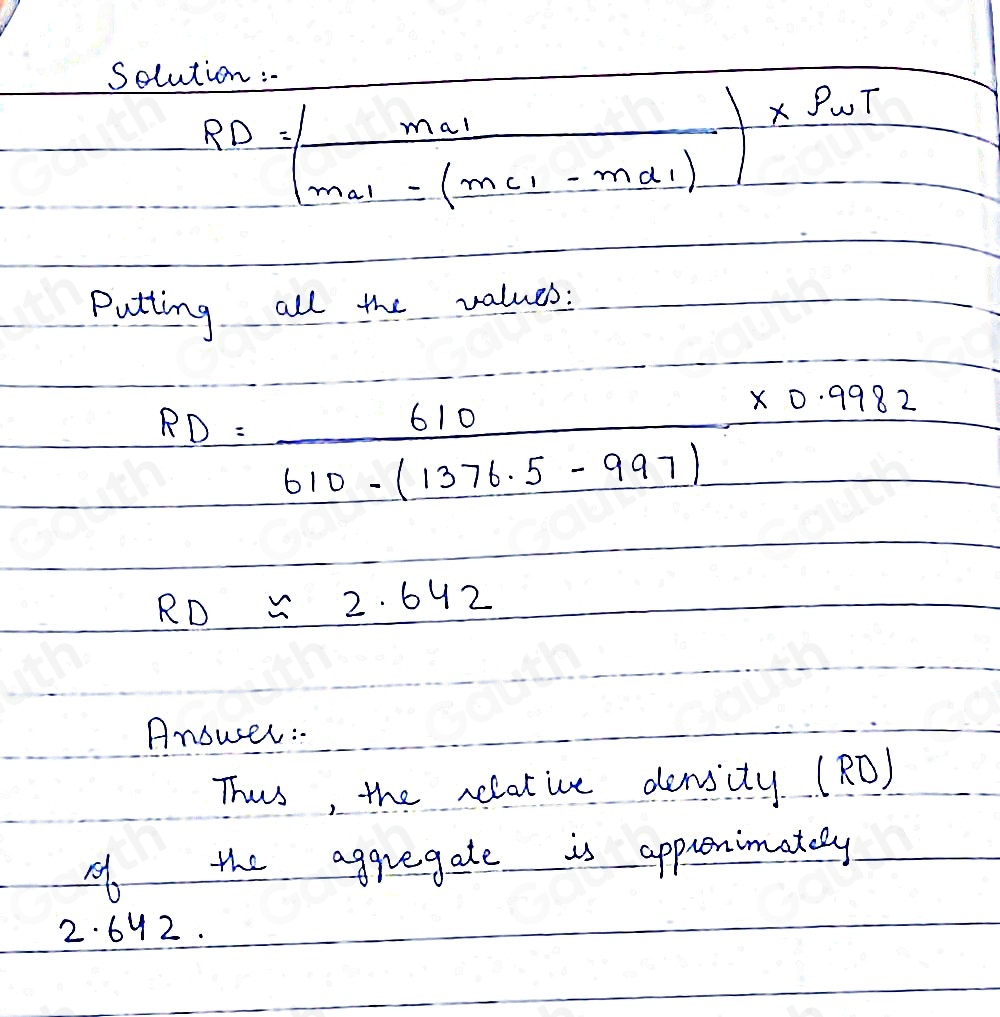 Solution :-
RD = ( ma1 / ma1 - (mc1 - md1) ) × PwT
Putting all the values:
RD = 610 / 610 - (1376.5 - 997) × 0.9982
RD ≈ 2.642
Answer :-
Thus, the relative density (RD)
of the aggregate is approximately
2.642.
Gauth